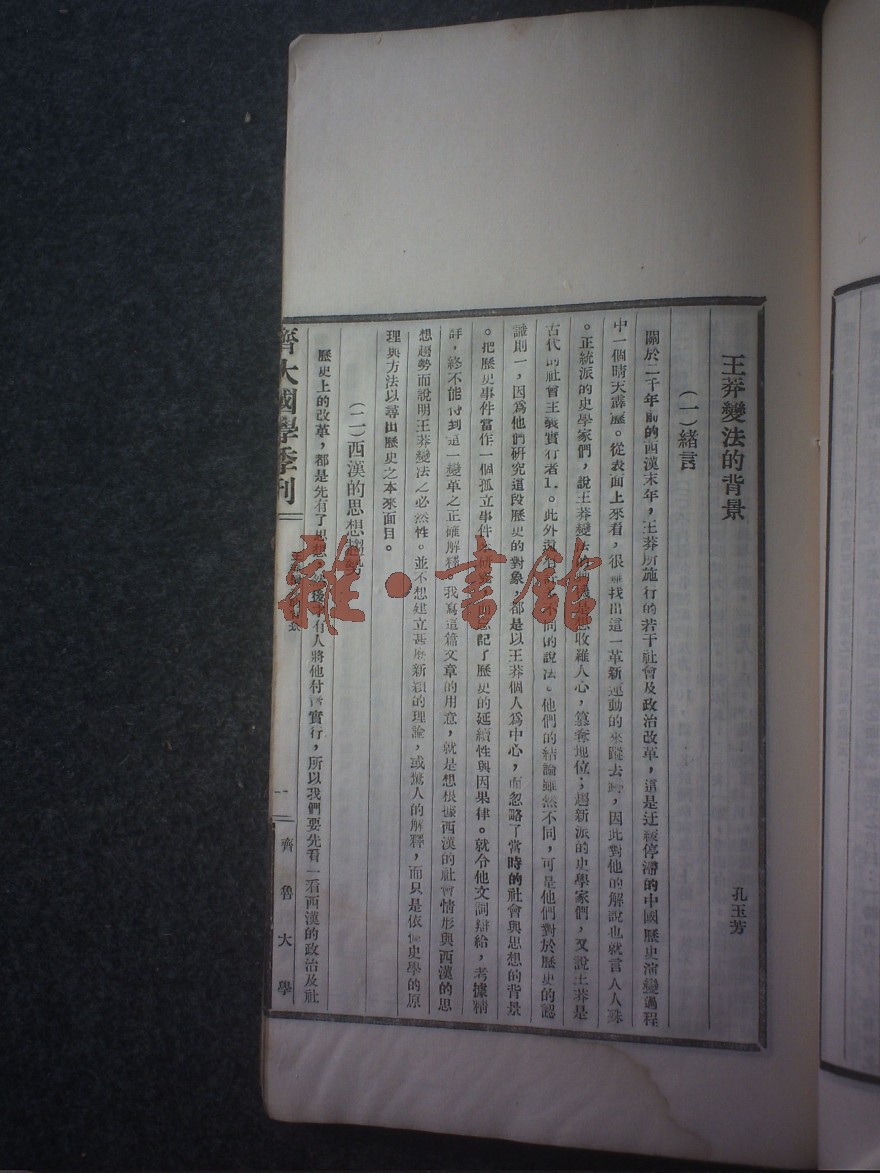 王莽變法的背景
孔玉芳
(一)緒言
關於二千年前的西漢末年，王莽所施行的若干社會及政治改革，這是迂緩停滯的中國歷史演變過程
中一個晴天霹靂。從表面上來看，很難找出這一革新運動的來蹤去跡，因此對他的解說也就言人人殊
。正統派的史學家們，說王莽變法的是想收羅人心，篡奪地位；趨新派的史學家們，又說王莽是
古代的社會主義實行者1.。此外還有許多不同的說法。他們的結論雖然不同，可是他們對於歷史的認
識則一，因為他們研究這段歷史的對象，都是以王莽個人為中心，而忽略了當時的社會與思想的背景
。把歷史事件當作一個孤立事件忘記了歷史的延續性與因果律。就令他文詞辯給，考據精
詳，終不能得到這一變革之正確解釋。我寫這篇文章的用意，就是想根據西漢的社會情形與西漢的思
想趨勢而說明王莽變法之必然性。並不想建立甚麼新穎的理論，或驚人的解釋，而只是依據史學的原
理與方法以尋出歷史之本來面目。
(二)西漢的思想趨勢
歷史上的改革，都是先有了思想有人將他付諸實行，所以我們要先看一看西漢的政治及社
齊大國學季刊
一
齊魯大學
雜·書館